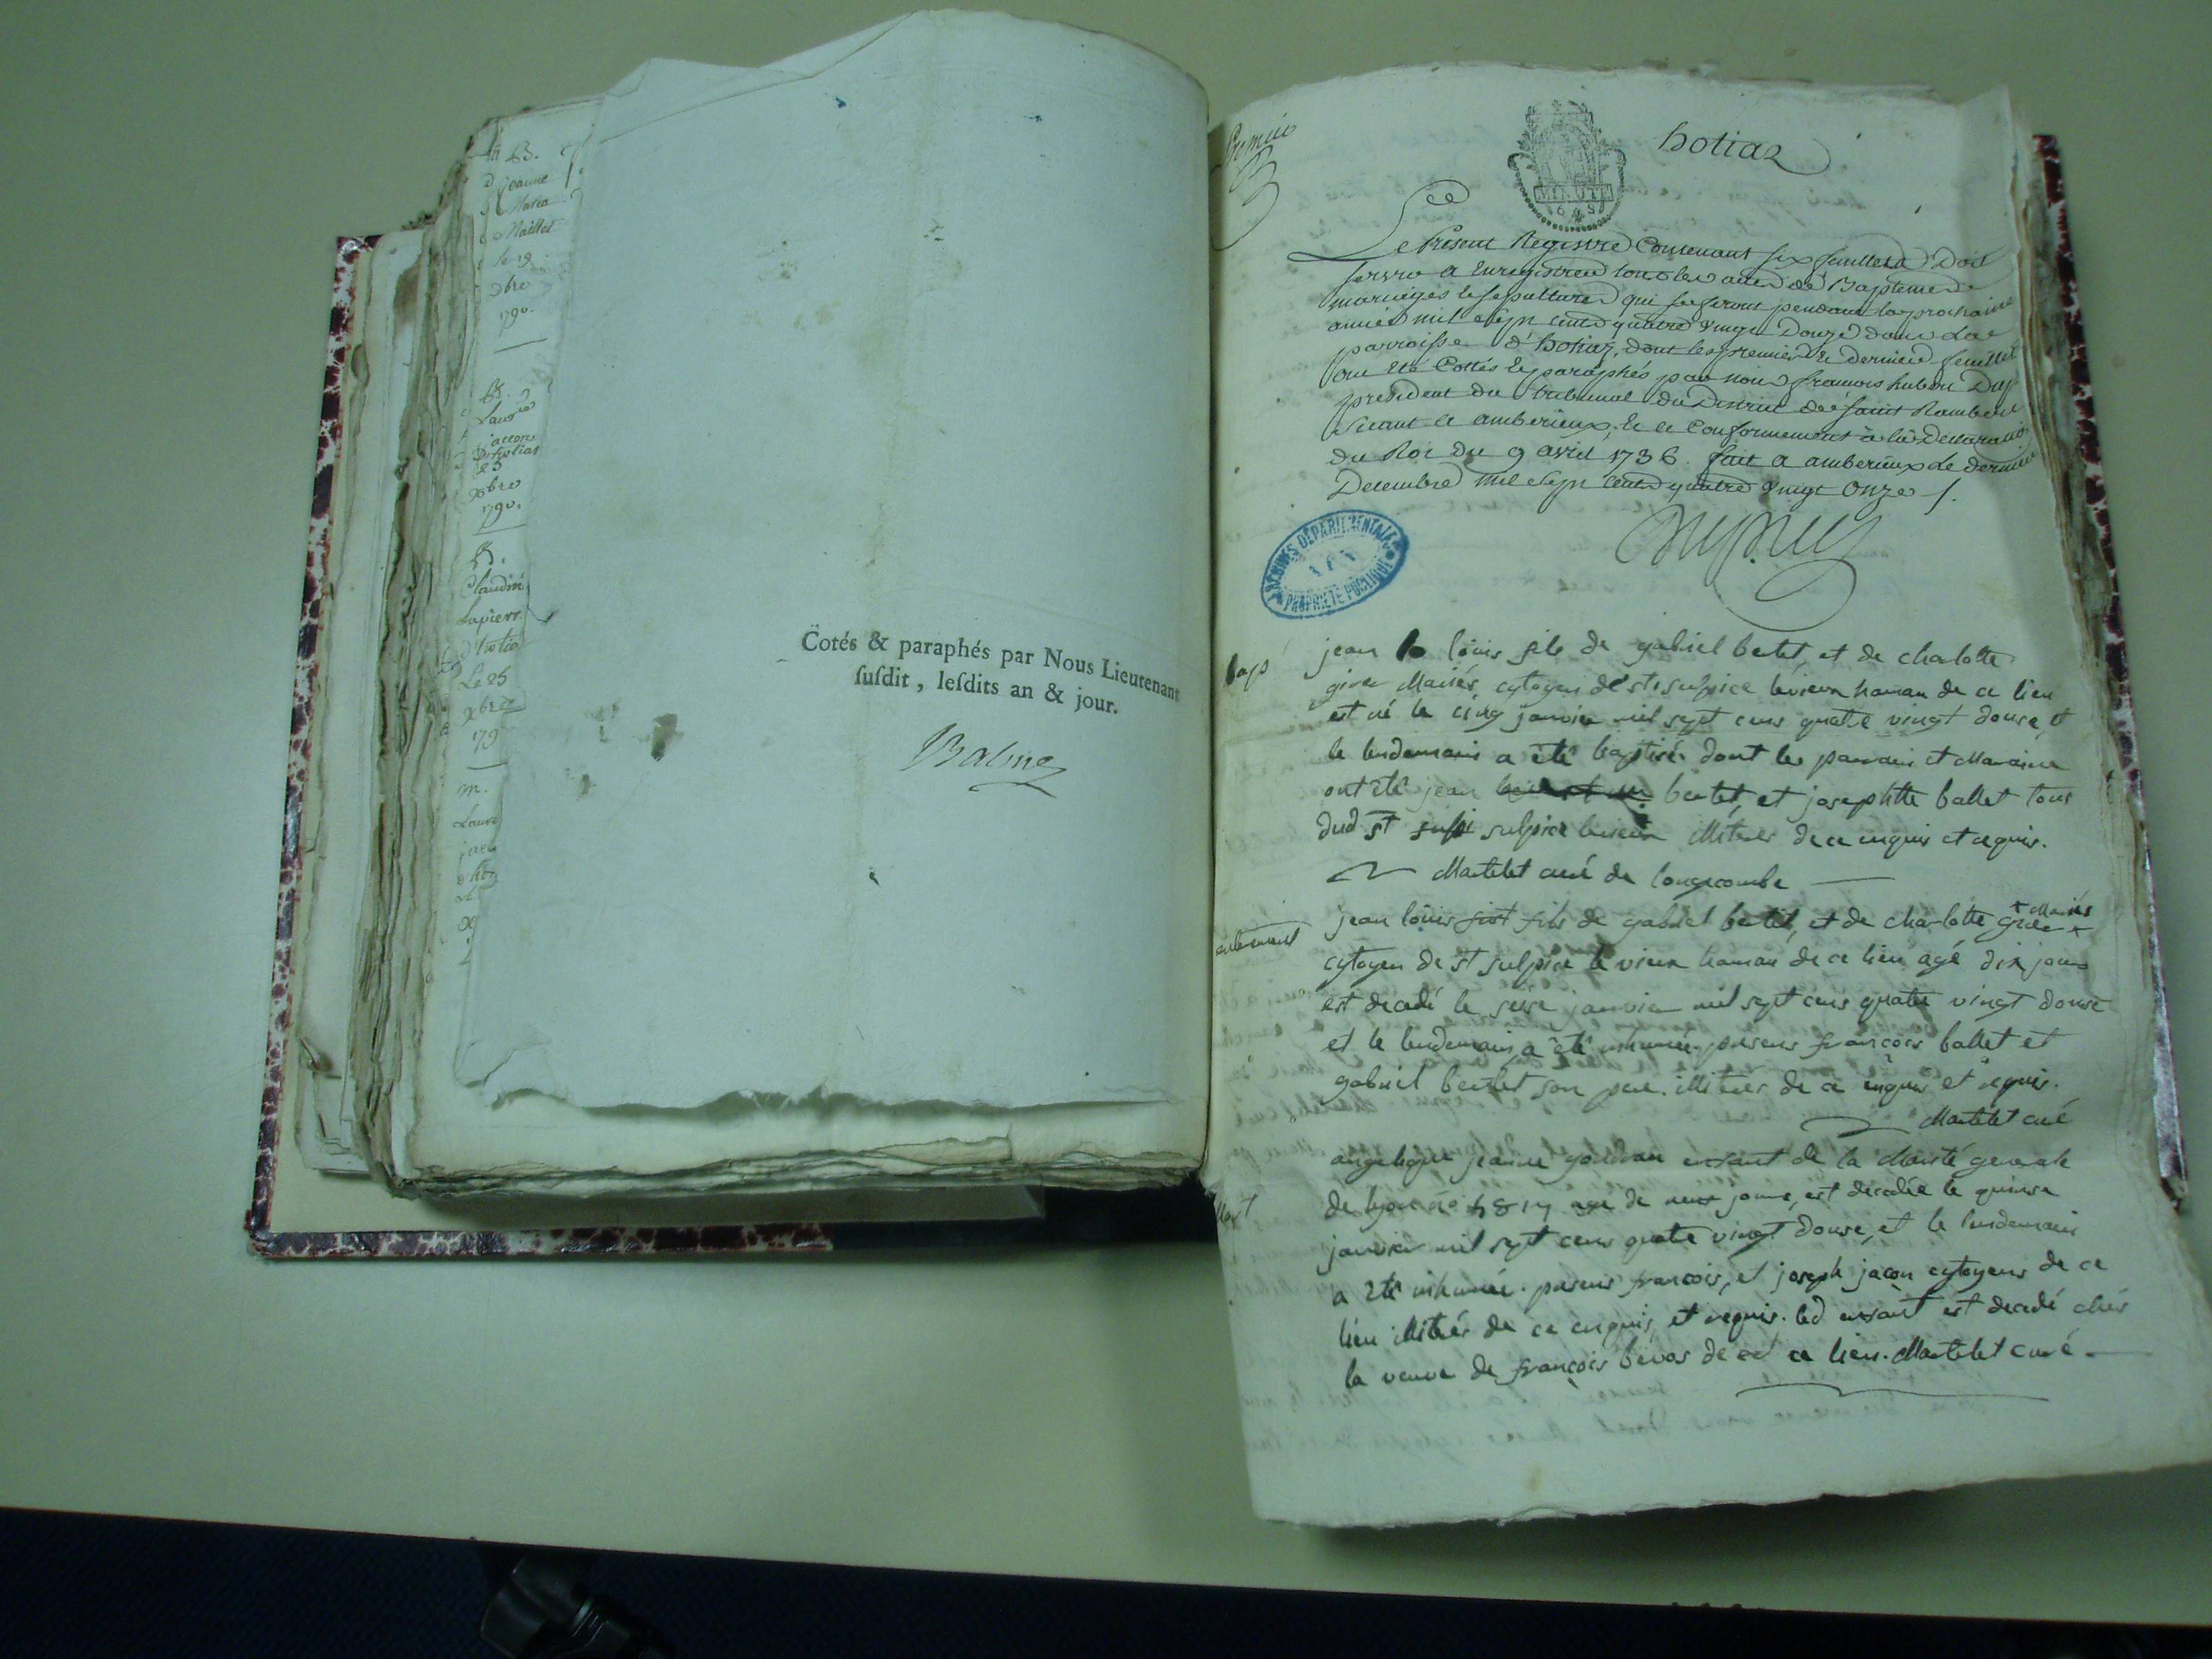 B.
jeanne
Maria
Maillet
le 19
9bre
1790.
B.
jacon
d'hotias
25
9bre
1790.
B.
Claudin
Lapierr
d'hotia
Le 25
9bre
179
m.
Laur
jac
d'hot
Cotés & paraphés par Nous Lieutenant
ſuſdit, leſdits an & jour.
Balme
Premier
hotiaz
MINUTE
Le Présent Registre Contenant six feuillets Doit
servir a Enregistrer tous les actes de Baptemes
mariages et sepultures qui se feront pendant la prochaine
année mil sept cent quatre vingt Douze dans La
parroisse d'hotiaz, dont les premier et dernier feuillet
ont été Cottés et paraphés par nous françois hubert Dup
president du tribunal du District de saint Rambert
seant a amberieux, et ce Conformement à la Declaration
du Roi du 9 avril 1736. fait a amberieux le dernier
Decembre mil sept cent quatre vingt Onze /.
Dupuy
ARCHIVES DÉPARTEMENTALES
AIN
PROPRIÉTÉ PUBLIQUE
bapt
jean louis fils de gabriel betet, et de charlotte
Mariés, cytoyen de st sulpice levieux hamau de ce lieu
est né le cinq janvier mil sept cens quatre vingt douse, et
le lendemain a été baptisé. dont les parrain et Maraine
ont été jean bertet, et josephtte ballet tous
dud st sulpice levieux illitrés de ce enquis et requis.
Martelet curé de longecombe
enterrement
jean louis fils de gabriel bertet, et de charlotte + Mariés
cytoyen de st sulpice le vieux hamau de ce lieu agé dix jours
est decedé le seise janvier mil sept cens quatre vingt douse
et le lendemain a été inhumée. presens françois ballet et
gabriel bertet son pere. illitrés de ce enquis et requis.
Martelet curé
Mort
angelique jeanne enfant de la charité generale
de lyon no agé de neuf jours, est decedée le quinse
janvier mil sept cens quatre vingt douse, et le lendemain
a été inhumée. presens francois, et joseph jacon cytoyens de ce
lieu illitrés de ce enquis, et requis. led enfant est decedé chés
la veuve de françois bevos de ce lieu. Martelet curé